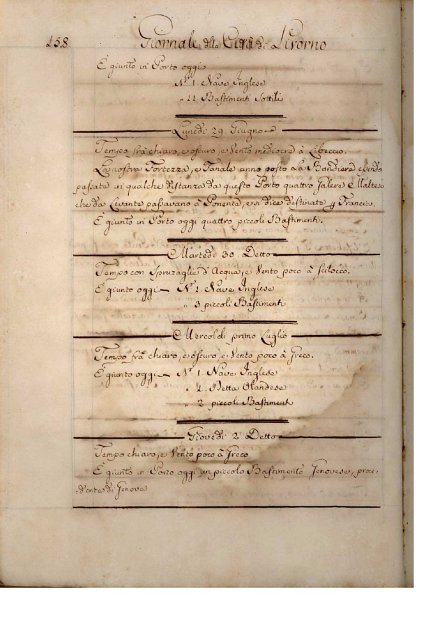 158 Giornale della Città di Livorno
È giunto in Porto oggi
N.º 1 Nave Inglese
" 11 Bastimenti Sottili
Lunedì 29 Giugno
Tempo frà chiaro, e oscuro, e Vento mediocre à Libeccio.
La nostra Fortezza, e Fanale anno posto La Bandiera essendo
passate in qualche distanza da questo Porto quattro Galere Maltesi
che da Levante passavano à Ponente, e si dice destinate p Francia.
È giunto in Porto oggi quattro piccoli Bastimenti.
Martedì 30 Detto
Tempo con Spruzaglie d'Acqua, e Vento poco à Scilocco.
È giunto oggi N.º 1 Nave Inglese
" 3 piccoli Bastimenti
Mercoldì primo Luglio
Tempo frà chiaro, e oscuro e Vento poco à Greco.
È giunto oggi N.º 1 Nave Inglese
" 1 Detta Olandese
" 2 piccoli Bastimenti
Giovedì 2 Detto
Tempo chiaro, e Vento poco à Greco
È giunto in Porto oggi un piccolo Bastimento Genovese, proce-
dente di Genova